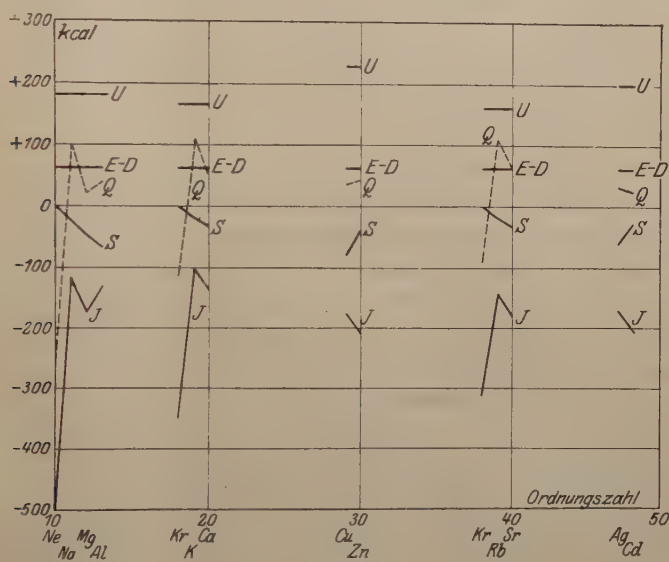 +300
kcal
+200
+100
0
-100
-200
-300
-400
-500
U
E-D
Q
S
J
U
E-D
Q
S
J
U
E-D
Q
S
J
U
Q
E-D
S
J
U
E-D
Q
S
J
Ordnungszahl
10 20 30 40 50
Ne Mg Kr Ca Cu Kr Sr Ag
Na Al K Zn Rb Cd